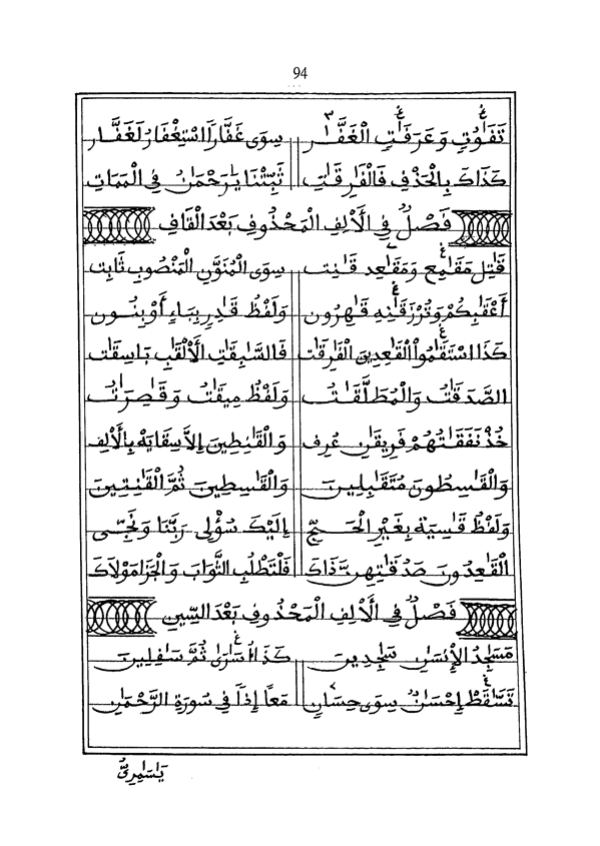 94
تَفَاوُتٍ وَعَرَفَاتٍ الْغَفَّارُ سِوَى غَفَّارًا اسْتِغْفَارُ لَغَفَّار
كَذَاكَ بِالْحَذْفِ فَالْفَارِقَاتِ ثَبِّتْنَا يَا رَحْمَانُ فِي الْمَمَاتِ
فَصْلٌ فِي الْأَلِفِ الْمَحْذُوفِ بَعْدَ الْقَافِ
قَاتِل مَقَامِع وَمَقَاعِد قَانِت سِوَى الْمُنَوَّنِ الْمَنْصُوبِ ثَابِت
أَعْقَابِكُمْ وَتُرْزَقَانِهِ قَاهِرُون وَلَفْظُ قَادِرٍ بِبَاءٍ أَوْ بِنُون
كَذَا اسْتَقَامُوا الْقَاعِدِينَ الْفَارِقَات فَالسَّابِقَاتِ الْأَلْقَابِ بَاسِقَات
الصَّدَقَاتُ وَالْمُطَلَّقَاتُ وَلَفْظُ مِيقَاتُ وَقَاصِرَاتُ
خُذْ نَفَقَاتُهُمْ فَرِيقَانِ عُرِف وَالْقَانِطِينَ إِلَّا سِقَايَةَ بِالْأَلِف
وَالْقَاسِطُونَ مُتَقَابِلِينَ وَالْقَاسِطِينَ ثُمَّ الْقَانِتِينَ
وَلَفْظُ قَاسِيَةً بِغَيْرِ الْحَجِّ إِلَيْكَ سُؤْلِي رَبَّنَا وَنَجِّي
الْقَاعِدُونَ صَدُقَاتِهِنَّ ذَاكَ فَلْتَطْلُبِ الثَّوَابَ وَالْجَزَا مَوْلَاكَ
فَصْلٌ فِي الْأَلِفِ الْمَحْذُوفِ بَعْدَ السِّينِ
مَسَاجِدُ الْإِنْسَانِ سَاجِدِينَ كَذَا أُسَارَى ثُمَّ سَافِلِينَ
تَسَّاقَطْ إِحْسَانٌ سِوَى حِسَانٍ مَعًا إِذَا فِي سُورَةِ الرَّحْمَانِ
يَاسَامِرِيُّ